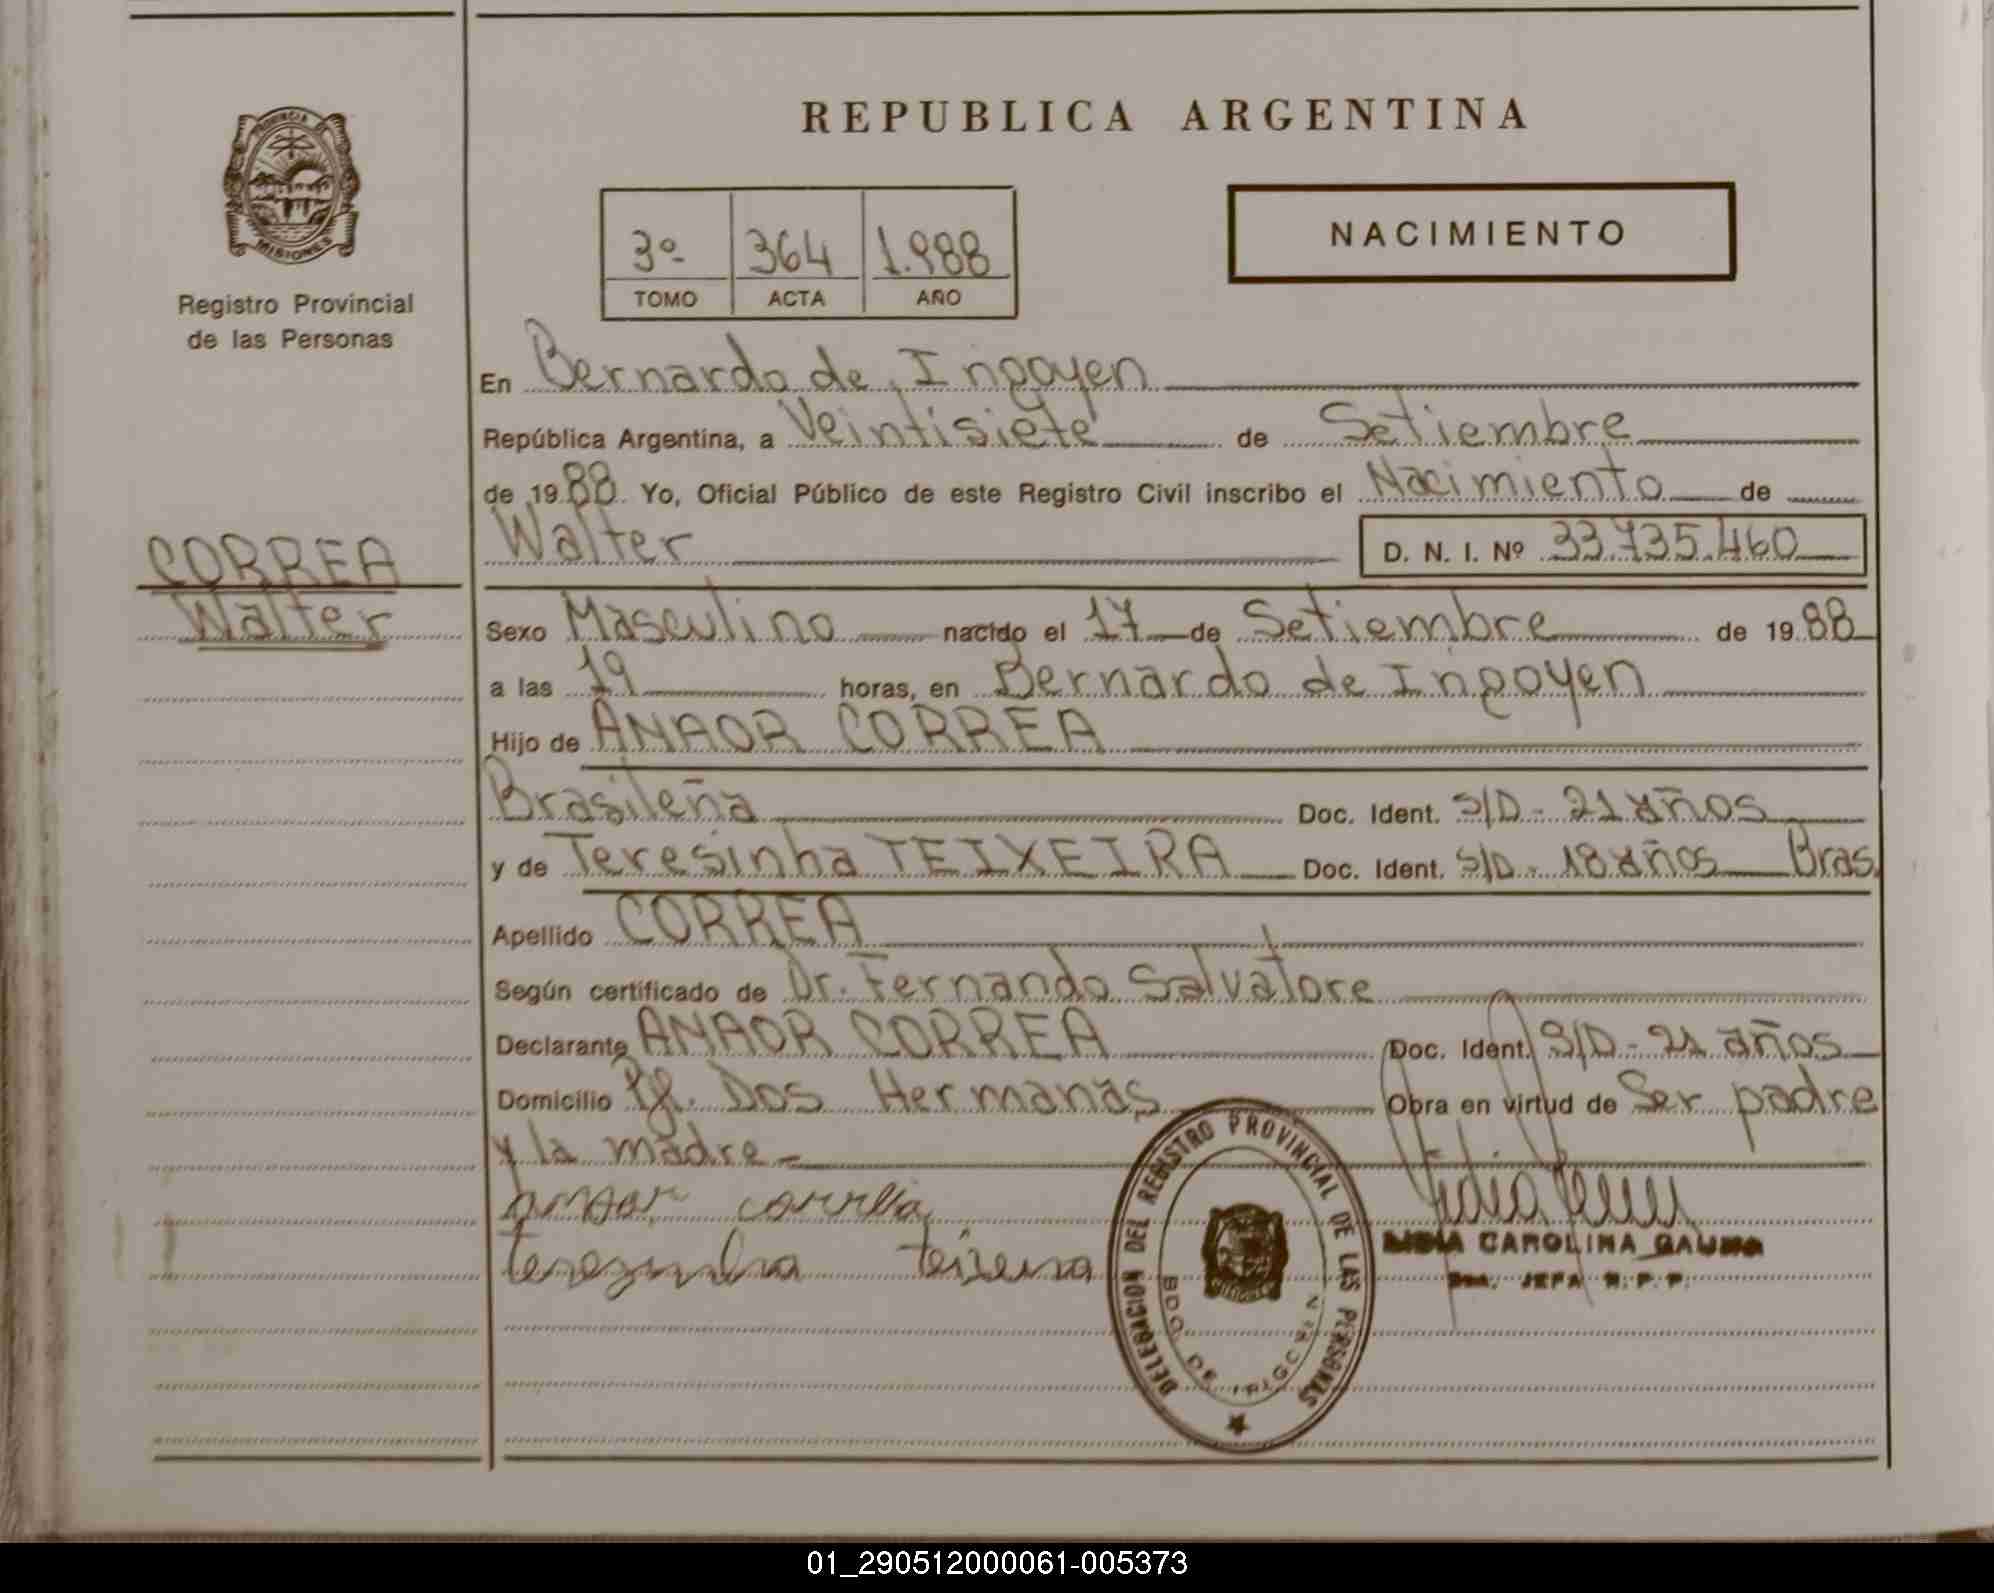 REPUBLICA ARGENTINA
PROVINCIA DE
MISIONES
Registro Provincial
de las Personas
3º 364 1.988
TOMO ACTA AÑO
NACIMIENTO
En Bernardo de Irigoyen
República Argentina, a Veintisiete de Setiembre
de 1988 Yo, Oficial Público de este Registro Civil inscribo el Nacimiento de
Walter D. N. I. Nº 33.735.460
CORREA
Walter
Sexo Masculino nacido el 17 de Setiembre de 1988
a las 19 horas, en Bernardo de Irigoyen
Hijo de ANAOR CORREA
Brasileña Doc. Ident. S/D - 21 años
y de Teresinha TEIXEIRA Doc. Ident. S/D - 18 años Bras.
Apellido CORREA
Según certificado de Dr. Fernando Salvatore
Declarante ANAOR CORREA Doc. Ident. S/D - 21 años
Domicilio Pje. Dos Hermanas Obra en virtud de Ser padre
y la madre -
anaor correia
terezinha teixeira
DELEGACION DEL REGISTRO PROVINCIAL DE LAS PERSONAS
BDO. DE IRIGOYEN
LIDIA CAROLINA GAUNA
JEFA R. P. P.
01_290512000061-005373